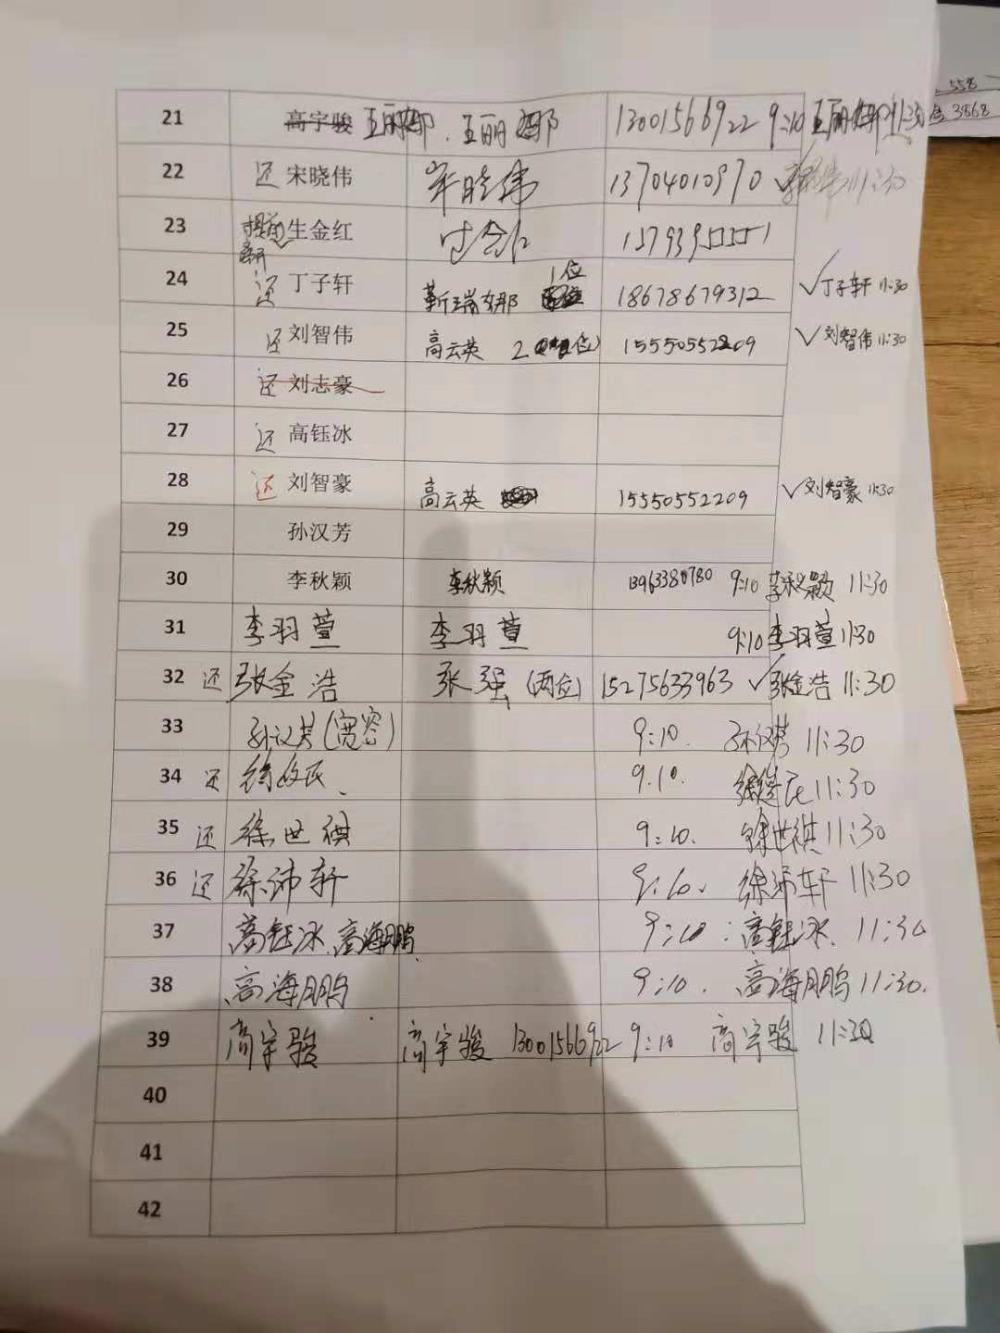 558
3868
21 高宇骏 王丽娜 . 王丽娜 13001566922 9:10 王丽娜 11:30
22 还 宋晓伟 宋晓伟 13704010970 ✓ 11:30
23 提前 生金红
24 还 丁子轩 靳瑞娜 1位 18678679312 ✓丁子轩 11:30
25 还 刘智伟 高云英 2 位) 15550552209 ✓刘智伟 11:30
26 还 刘志豪
27 还 高钰冰
28 还 刘智豪 高云英 15550552209 ✓刘智豪 11:30
29 孙汉芳
30 李秋颖 李秋颖 13963380780 9:10 李秋颖 11:30
31 李羽萱 李羽萱 9:10 李羽萱 11:30
32 还 张金浩 张强 (两位) 15275633963 ✓张金浩 11:30
33 孙汉芳 9:10. 孙汉芳 11:30
34 还 9.10. 11:30
35 还 徐世祺 9:10. 徐世祺 11:30
36 还 徐沛轩 9:10. 徐沛轩 11:30
37 高钰冰、高海鹏 9:10 : 高钰冰. 11:30
38 高海鹏 9:10. 高海鹏 11:30.
39 高宇骏 高宇骏 13001566922 9:10 高宇骏 11:30
40
41
42